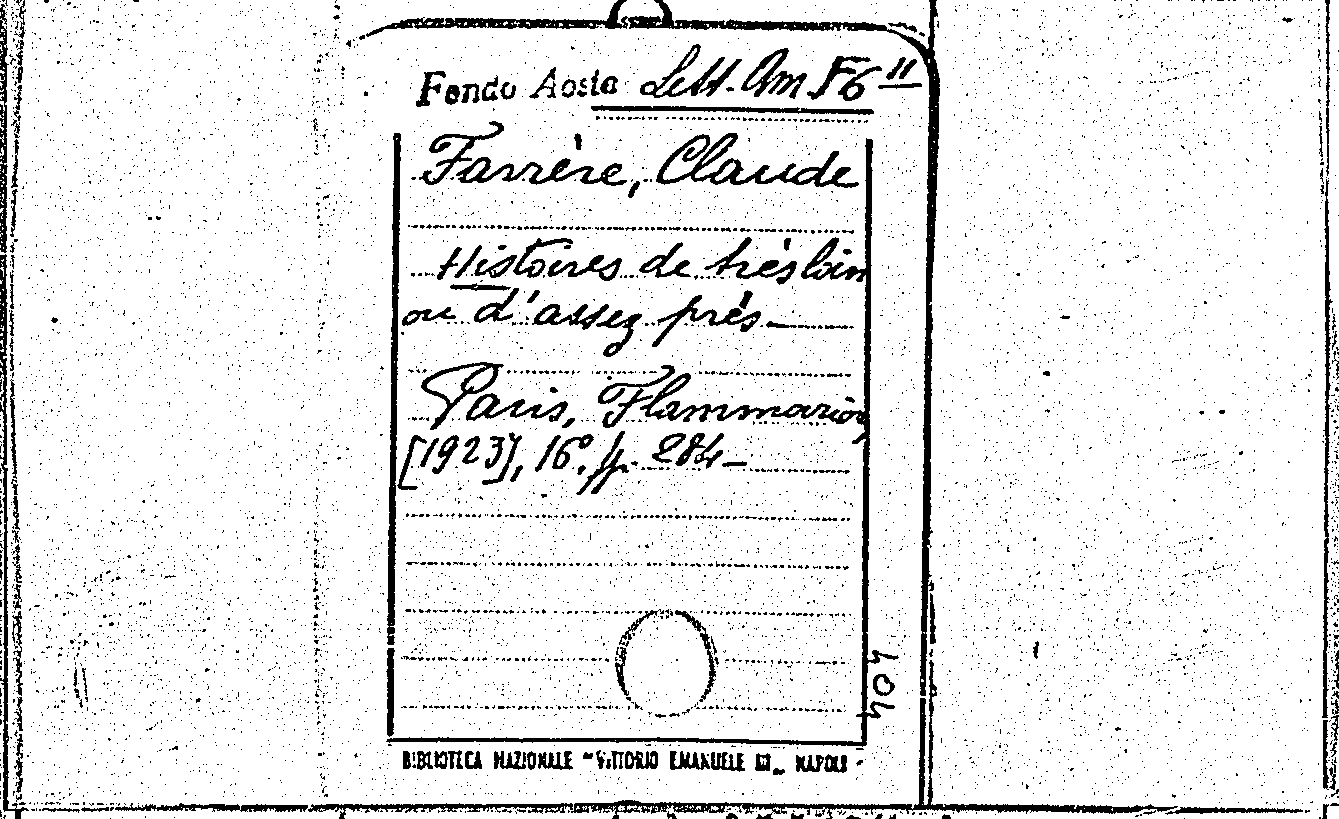 Fondo Aosta Lett. Am F6 II
Farrère, Claude
Histoires de très loin
ou d'assez près.
Paris, Flammarion,
[1923], 16º, pp. 284
404
BIBLIOTECA NAZIONALE "VITTORIO EMANUELE III„ NAPOLI